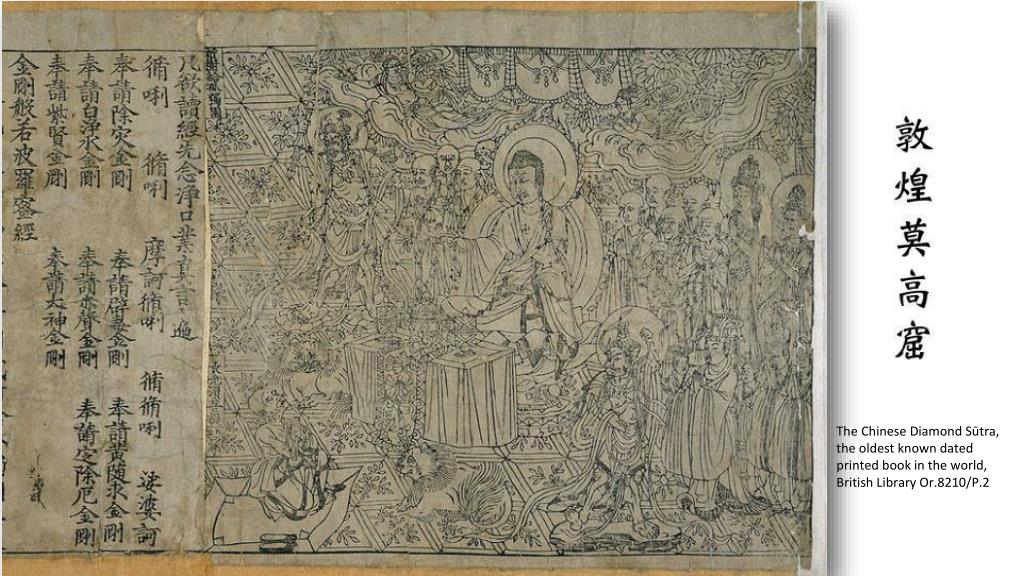 敦煌莫高窟
The Chinese Diamond Sūtra,
the oldest known dated
printed book in the world,
British Library Or.8210/P.2
祇樹給孤獨園
長老須菩提
凡欲讀經先念淨口業真言一遍
脩唎 脩唎 摩訶脩唎 脩脩唎 娑婆訶
奉請除灾金剛 奉請辟毒金剛 奉請黃隨求金剛
奉請白淨水金剛 奉請赤聲金剛 奉請定除厄金剛
奉請紫賢金剛 奉請大神金剛
金剛般若波羅蜜經